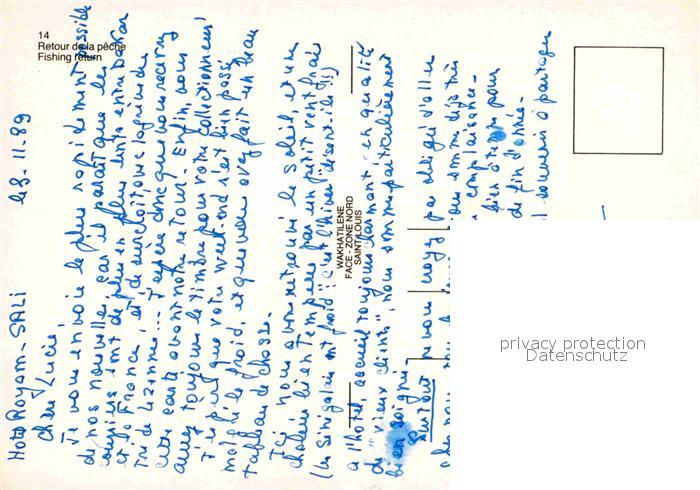 14
Retour de la pêche
Fishing return
Hotel Royam - SALI le 3-11-89
Chère Lucie,
Je vous envoie le plus rapidement possible
de nos nouvelles, car il paraît que les
courriers sont de plus en plus lents entre Dakar
et la France, et de surcroît, avec la grève du
tri de Lezennes... J'espère donc que vous recevrez
cette carte avant notre retour. Enfin, vous
aurez toujours le timbre pour votre collectionneur!
J'espère que votre week-end s'est bien passé
malgré le froid, et que vous avez fait un beau
tableau de chasse.
Ici, nous avons retrouvé le soleil, et une
chaleur bien tempérée par un petit vent frais
(les Sénégalais ont froid: "c'est l'hiver" disent-ils!!)
à l'hôtel, accueil toujours charmant, en qualité
de "vieux clients", nous sommes particulièrement
bien soignés.
Surtout, ne vous croyez pas obligée d'aller
chez nous
nous sommes déjà très
complaisance.
bien à temps pour
de fin d'année.
souvenirs à partager
WAKHATILENE
FACE - ZONE NORD
SAINT-LOUIS
privacy protection
Datenschutz